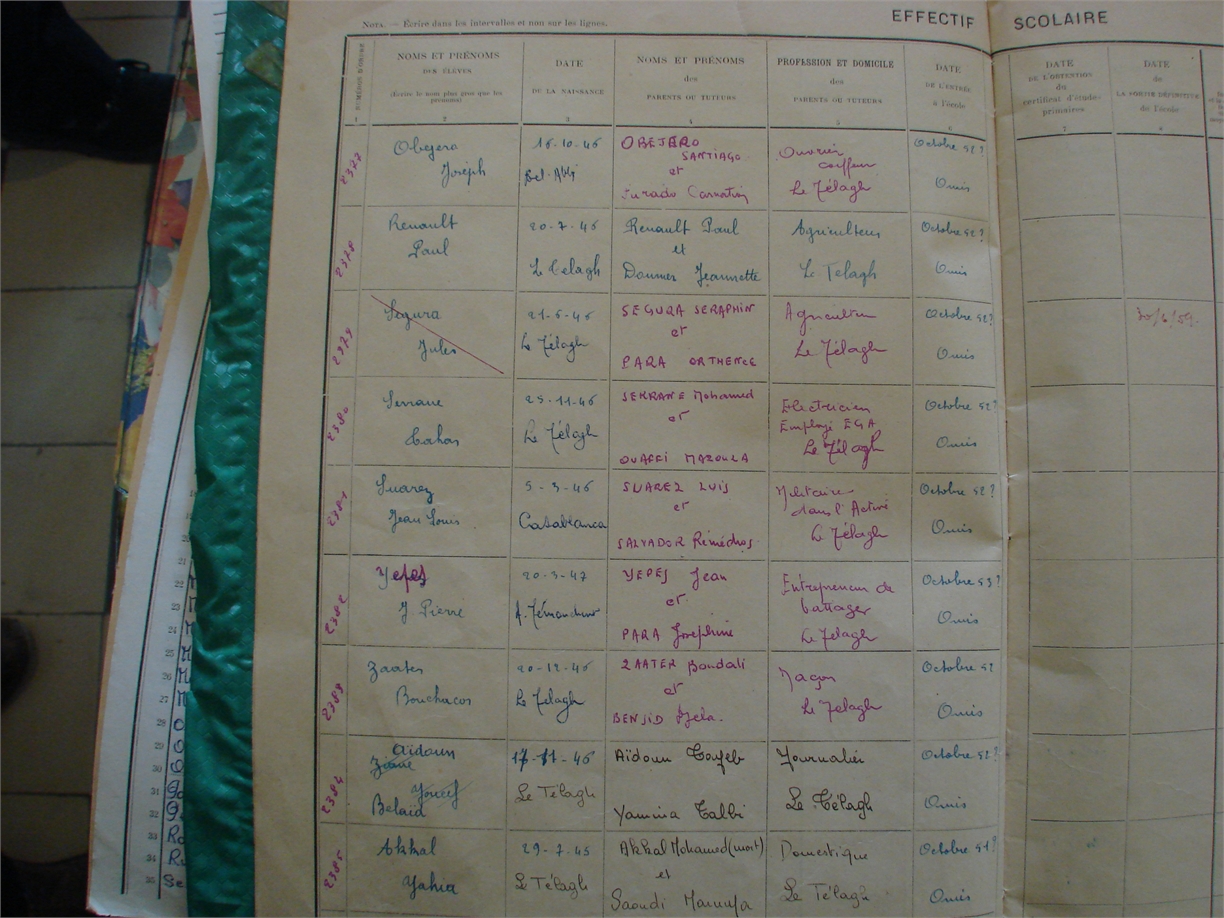 NOTA. — Écrire dans les intervalles et non sur les lignes.
EFFECTIF SCOLAIRE
NUMÉROS D'ORDRE
NOMS ET PRÉNOMS
DES ÉLÈVES
(Écrire le nom plus gros que les
prénoms)
DATE
DE LA NAISSANCE
NOMS ET PRÉNOMS
des
PARENTS OU TUTEURS
PROFESSION ET DOMICILE
des
PARENTS OU TUTEURS
DATE
DE L'ENTRÉE
à l'école
DATE
DE L'OBTENTION
du
certificat d'études
primaires
DATE
de
LA SORTIE DÉFINITIVE
de l'école
1 2 3 4 5 6 7 8
2377
Obejero
Joseph
16-10-46
Bel-Abbès
OBEJERO
SANTIAGO
et
Jurado
Ouvrier
coiffeur
Le Télagh
Octobre 52?
Omis
2378
Renault
Paul
20-7-46
Le Télagh
Renault Paul
et
Jeannette
Agriculteur
Le Télagh
Octobre 52?
Omis
2379
Segura
Jules
21-6-46
Le Télagh
SEGURA SERAPHIN
et
PARA ORTHENCE
Agriculteur
Le Télagh
Octobre 52?
Omis
30/6/59.
2380
Serrane
Tahar
25-11-46
Le Télagh
SERRANE Mohamed
et
OUAFFI MAZOUZA
Electricien
Employé EGA
Le Télagh
Octobre 52?
Omis
2381
Suarez
Jean Louis
5-3-46
Casablanca
SUAREZ LUIS
et
SALVADOR Rémédios
Militaire
dans l'Active
Le Télagh
Octobre 52?
Omis
2382
Yepes
J. Pierre
20-3-47
A. Témouchent
YEPES Jean
et
PARA Josephine
Entrepreneur de
battages
Le Télagh
Octobre 53?
Omis
2383
Zaater
Bouchacor
20-12-46
Le Télagh
ZAATER Boudali
et
BENJID
Maçon
Le Télagh
Octobre 52
Omis
2384
Aïdoun
Youcef
Belaïd
17-11-46
Le Télagh
Aïdoun Tayeb
Yamina Talbi
Journalier
Le Télagh
Octobre 52?
Omis
2385
Akkal
Yahia
29-7-45
Le Télagh
Akkal Mohamed (mort)
et
Saoudi
Domestique
Le Télagh
Octobre 51?
Omis